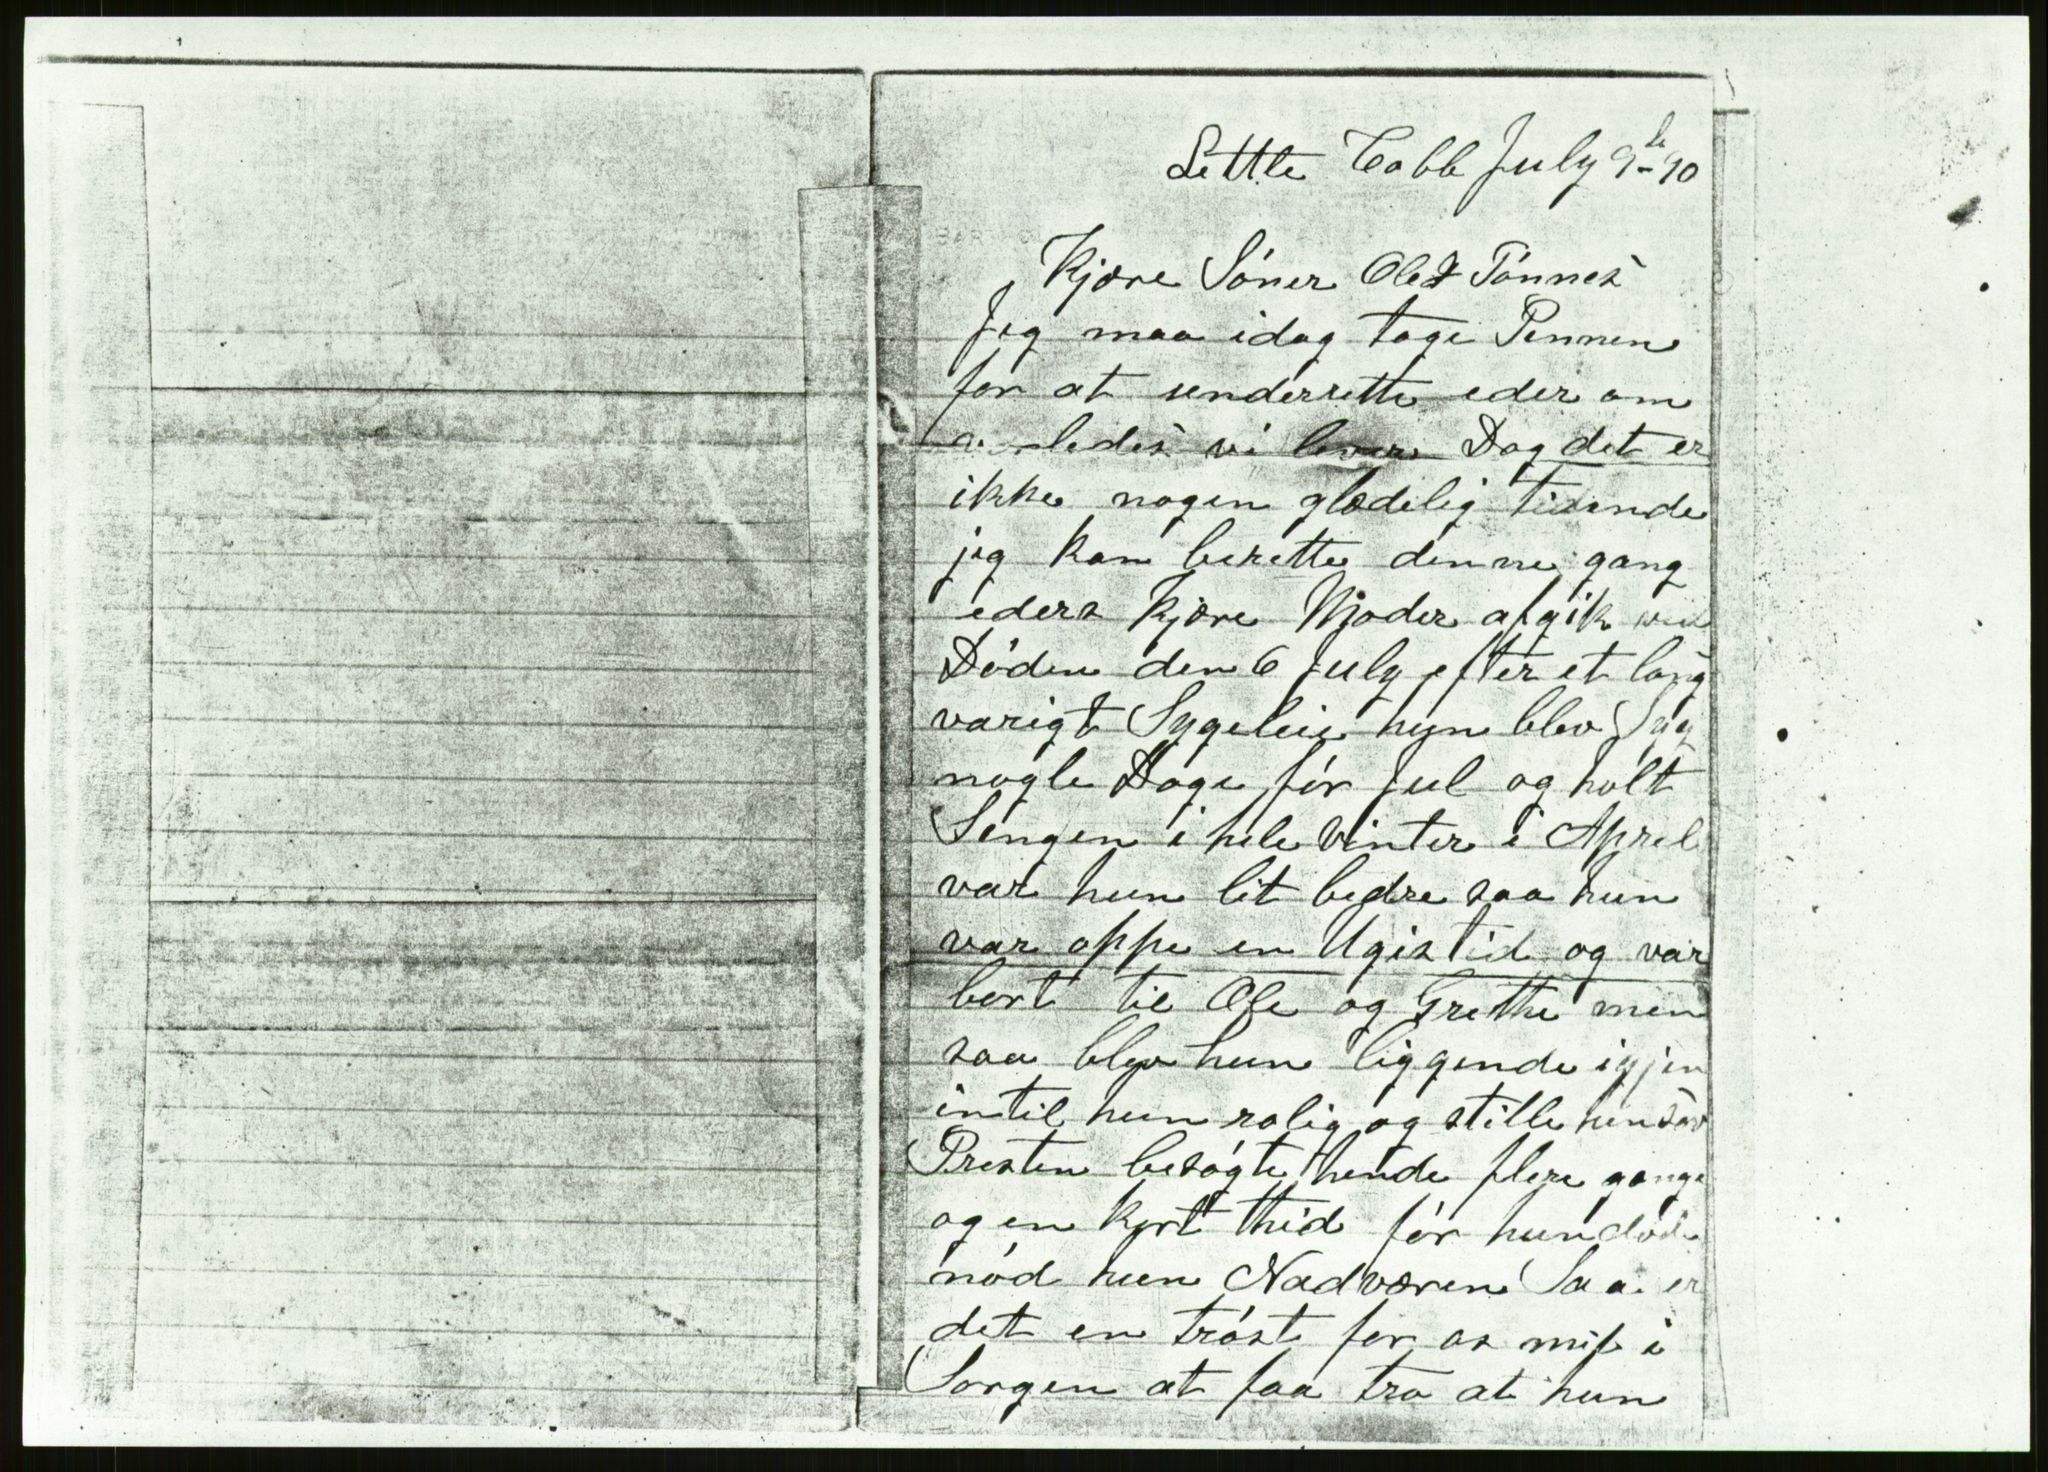 Little Cobb July 9de 90
Kjære Sóner Ole & Tónnes
Jeg maa idag tage Pennen
for at underrette eder om
vorledes vi lever Dog det er
ikke nogen glædelig tidende
jeg kan berette denne gang
eders Kjære Moder afgik ved
Dóden den 6 July efter et lang
varigt Sygeleie hun blev Syg
nogle Dage fór Jul og holt
Sengen i hele Vinter i April
var hun lit bedre saa hun
var oppe en Ugis tid og var
bort til Ole og Grethe men
saa blev hun liggende igjen
intil hun rolig og stille hensov
Presten besógte hende flere gange
og en kort thid fór hun dóde
nód hun Nadværen Saa er
det en tróst for os mit i
Sorgen at faa tro at hun